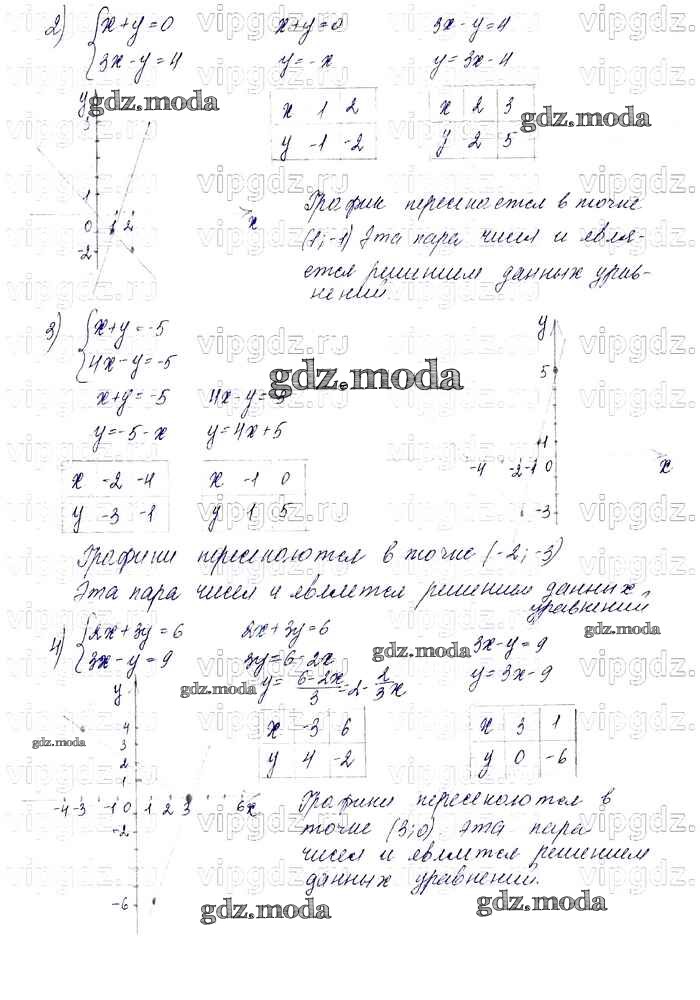 2) { x+y=0    x+y=0    3x-y=4
3x-y=4    y=-x    y=3x-4
gdz.moda
x 1 2    x 2 3
y -1 -2    y 2 5
gdz.moda
y
1
0 1 2 x
-2
График пересекается в точке
(1;-1) Эта пара чисел и явля-
ется решением данных урав-
нений
3) { x+y=-5
4x-y=-5
gdz.moda
x+y=-5    4x-y=-5
y=-5-x    y=4x+5
x -2 -4    x -1 0
y -3 -1    y 1 5
y
5
1
-4 -2 -1 0 x
-3
Графики пересекаются в точке (-2;-3)
Эта пара чисел и является решением данных
уравнений
gdz.moda
4) { 2x+3y=6    2x+3y=6    3x-y=9
3x-y=9    3y=6-2x    y=3x-9
gdz.moda
y= 6-2x/3 =2- 2/3 x
gdz.moda
x -3 6    x 3 1
y 4 -2    y 0 -6
gdz.moda
y
4
3
2
1
-4 -3 -1 0 1 2 3 6 x
-2
-6
Графики пересекаются в
точке (3;0). Эта пара
чисел и является решением
данных уравнений.
gdz.moda
gdz.moda
vipgdz.ru